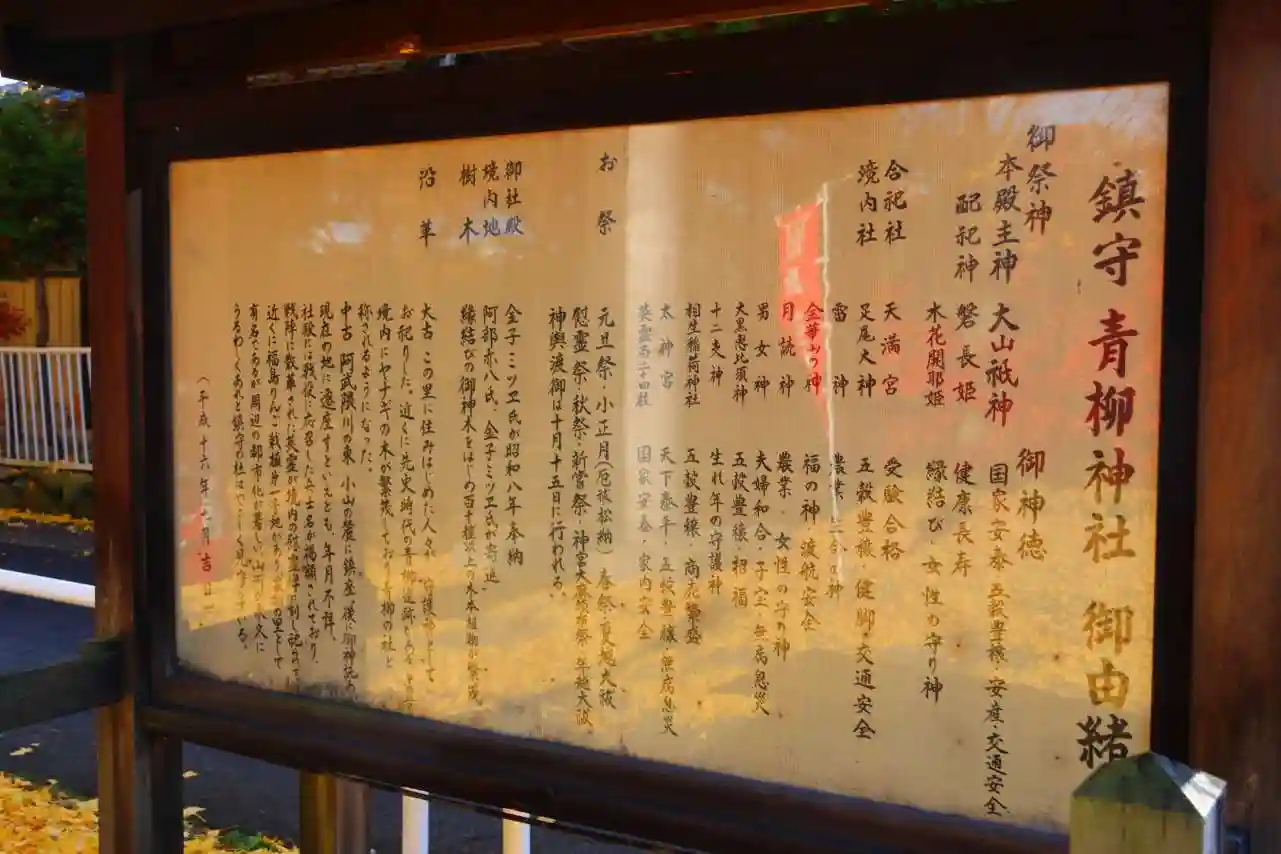 鎮守 青柳神社 御由緒
御祭神 御神徳
本殿主神 大山祇神 国家安泰・五穀豊穣・安産・交通安全
配祀神 磐長姫 健康長寿
木花開耶姫 縁結び・女性の守り神
合祀社 天満宮 受験合格
境内社 足尾大神 五穀豊穣・健脚・交通安全
雷神 農業 の神
金華山の神 福の神・渡航安全
月読神 農業・女性の守の神
男女神 夫婦和合・子宝・無病息災
大黒恵比須神 五穀豊穣・招福
十二支神 生れ年の守護神
相生稲荷神社 五穀豊穣・商売繁盛
太神宮 天下泰平・五穀豊穣・無病息災
英霊百二十四柱 国家安泰・家内安全
お祭 元旦祭・小正月(厄祓松納)春祭・夏越大祓
慰霊祭・秋祭・新嘗祭・神宮大麻頒布祭・年越大祓
神輿渡御は十月十五日に行われる。
御社殿 金子ミツヱ氏が昭和八年奉納
境内地 阿部亦八氏、金子ミツヱ氏が寄進
樹木 縁結びの御神木をはじめ百十種以上の木本植物が繁茂
沿革 太古 この里に住みはじめた人々が 守護神として
お祀りした。近くに先史時代の青柳遺跡もある
境内にヤナギの木が繁茂しており青柳の社と
称されるようになった。
中古 阿武隈川の東 小山の麓に鎮座
現在の地に遷座すといえども、年月不詳、
社殿には戦役に応召した兵士名が掲額されており、
戦陣に散華された英霊が境内の
近くに福島りんご栽植 の里として
有名であるが周辺の都市化が著しい。
うるわしくあれと鎮守の社は
(平成十六年 月吉日)